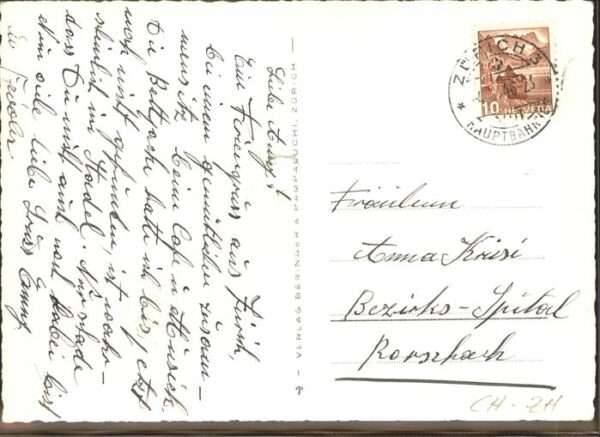 Liebe Anny!
Ein Feriengruss aus Zürich,
bei einem gemütlichen Zusam-
mensitz beim Cafe u. Musich.
Die Bettjacke hatte ich bis jetzt
noch nicht gefunden, ist wahr-
scheinlich im Stadel. Nur schade
dass Du nicht auch noch dabei bist
viele liebe Grüsse Emmy
- VERLAG BERINGER & PAMPALUCHI, ZÜRICH -
ZÜRICH 3
HAUPTBAHN
10 HELVETIA
Fräulein
Anna Krisi
Bezirks-Spital
Rorschach
CH-ZH